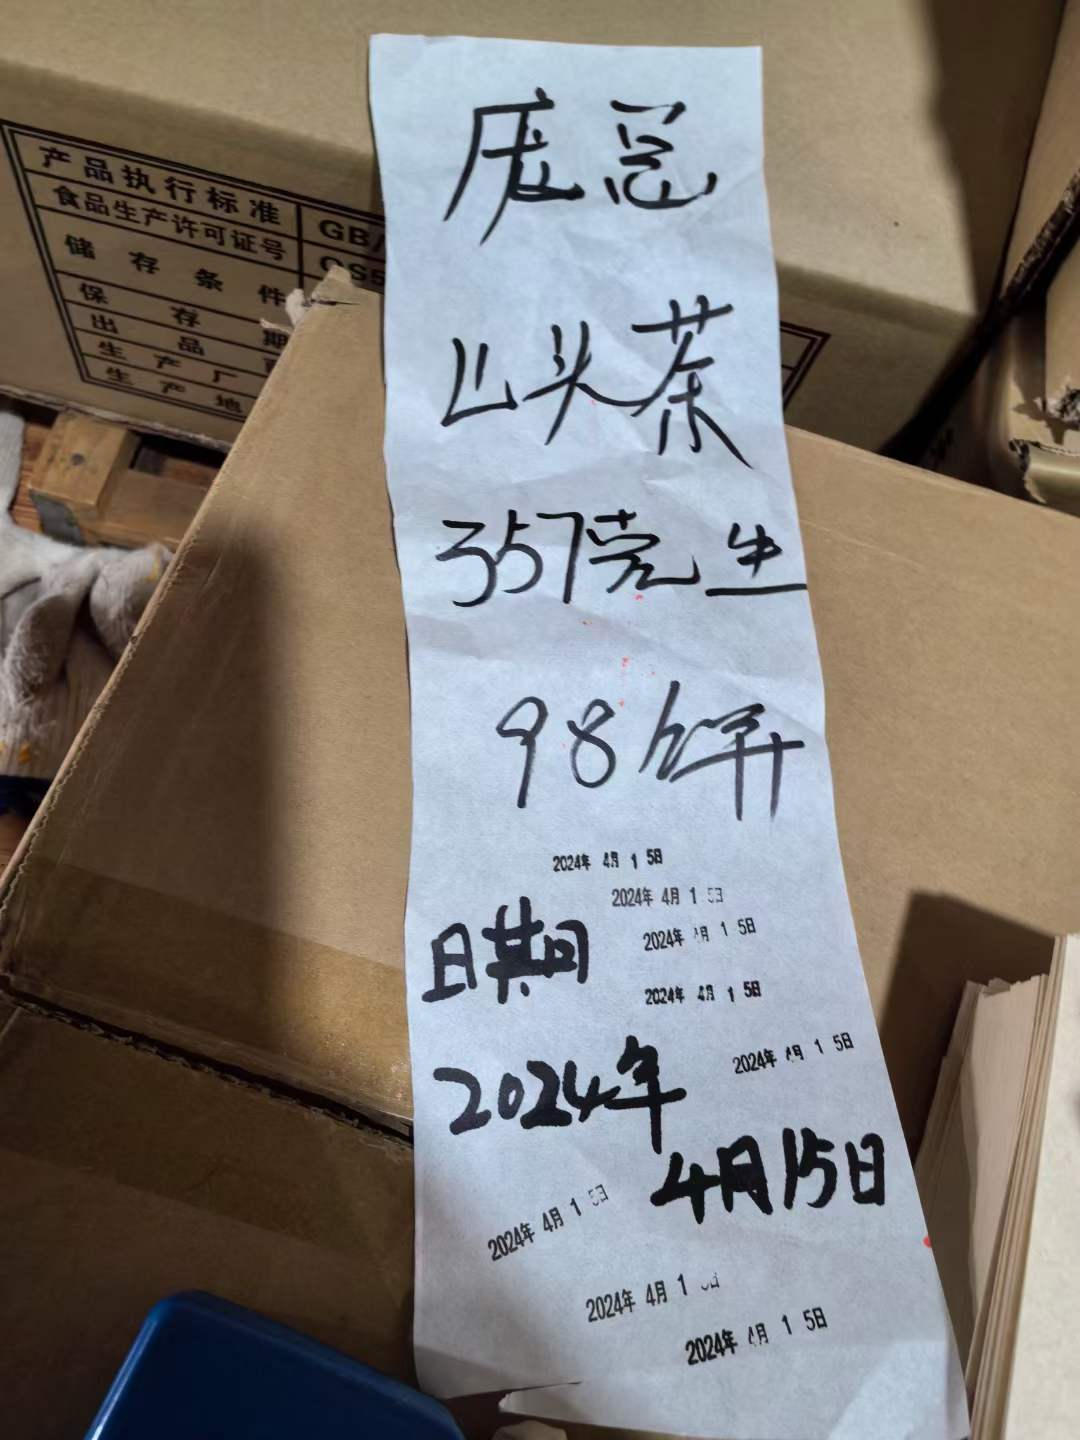 产品执行标准 GB/
食品生产许可证号 QS5
储存条件
保存期
出品
生产厂
生产地
庞总
山头茶
357克生
98饼
2024年 4月 1 5日
2024年 4月 1 5日
2024年 4月 1 5日
日期
2024年 4月 1 5日
2024年
2024年 4月 1 5日
4月15日
2024年 4月 1 5日
2024年 4月 1 5日
2024年 4月 1 5日